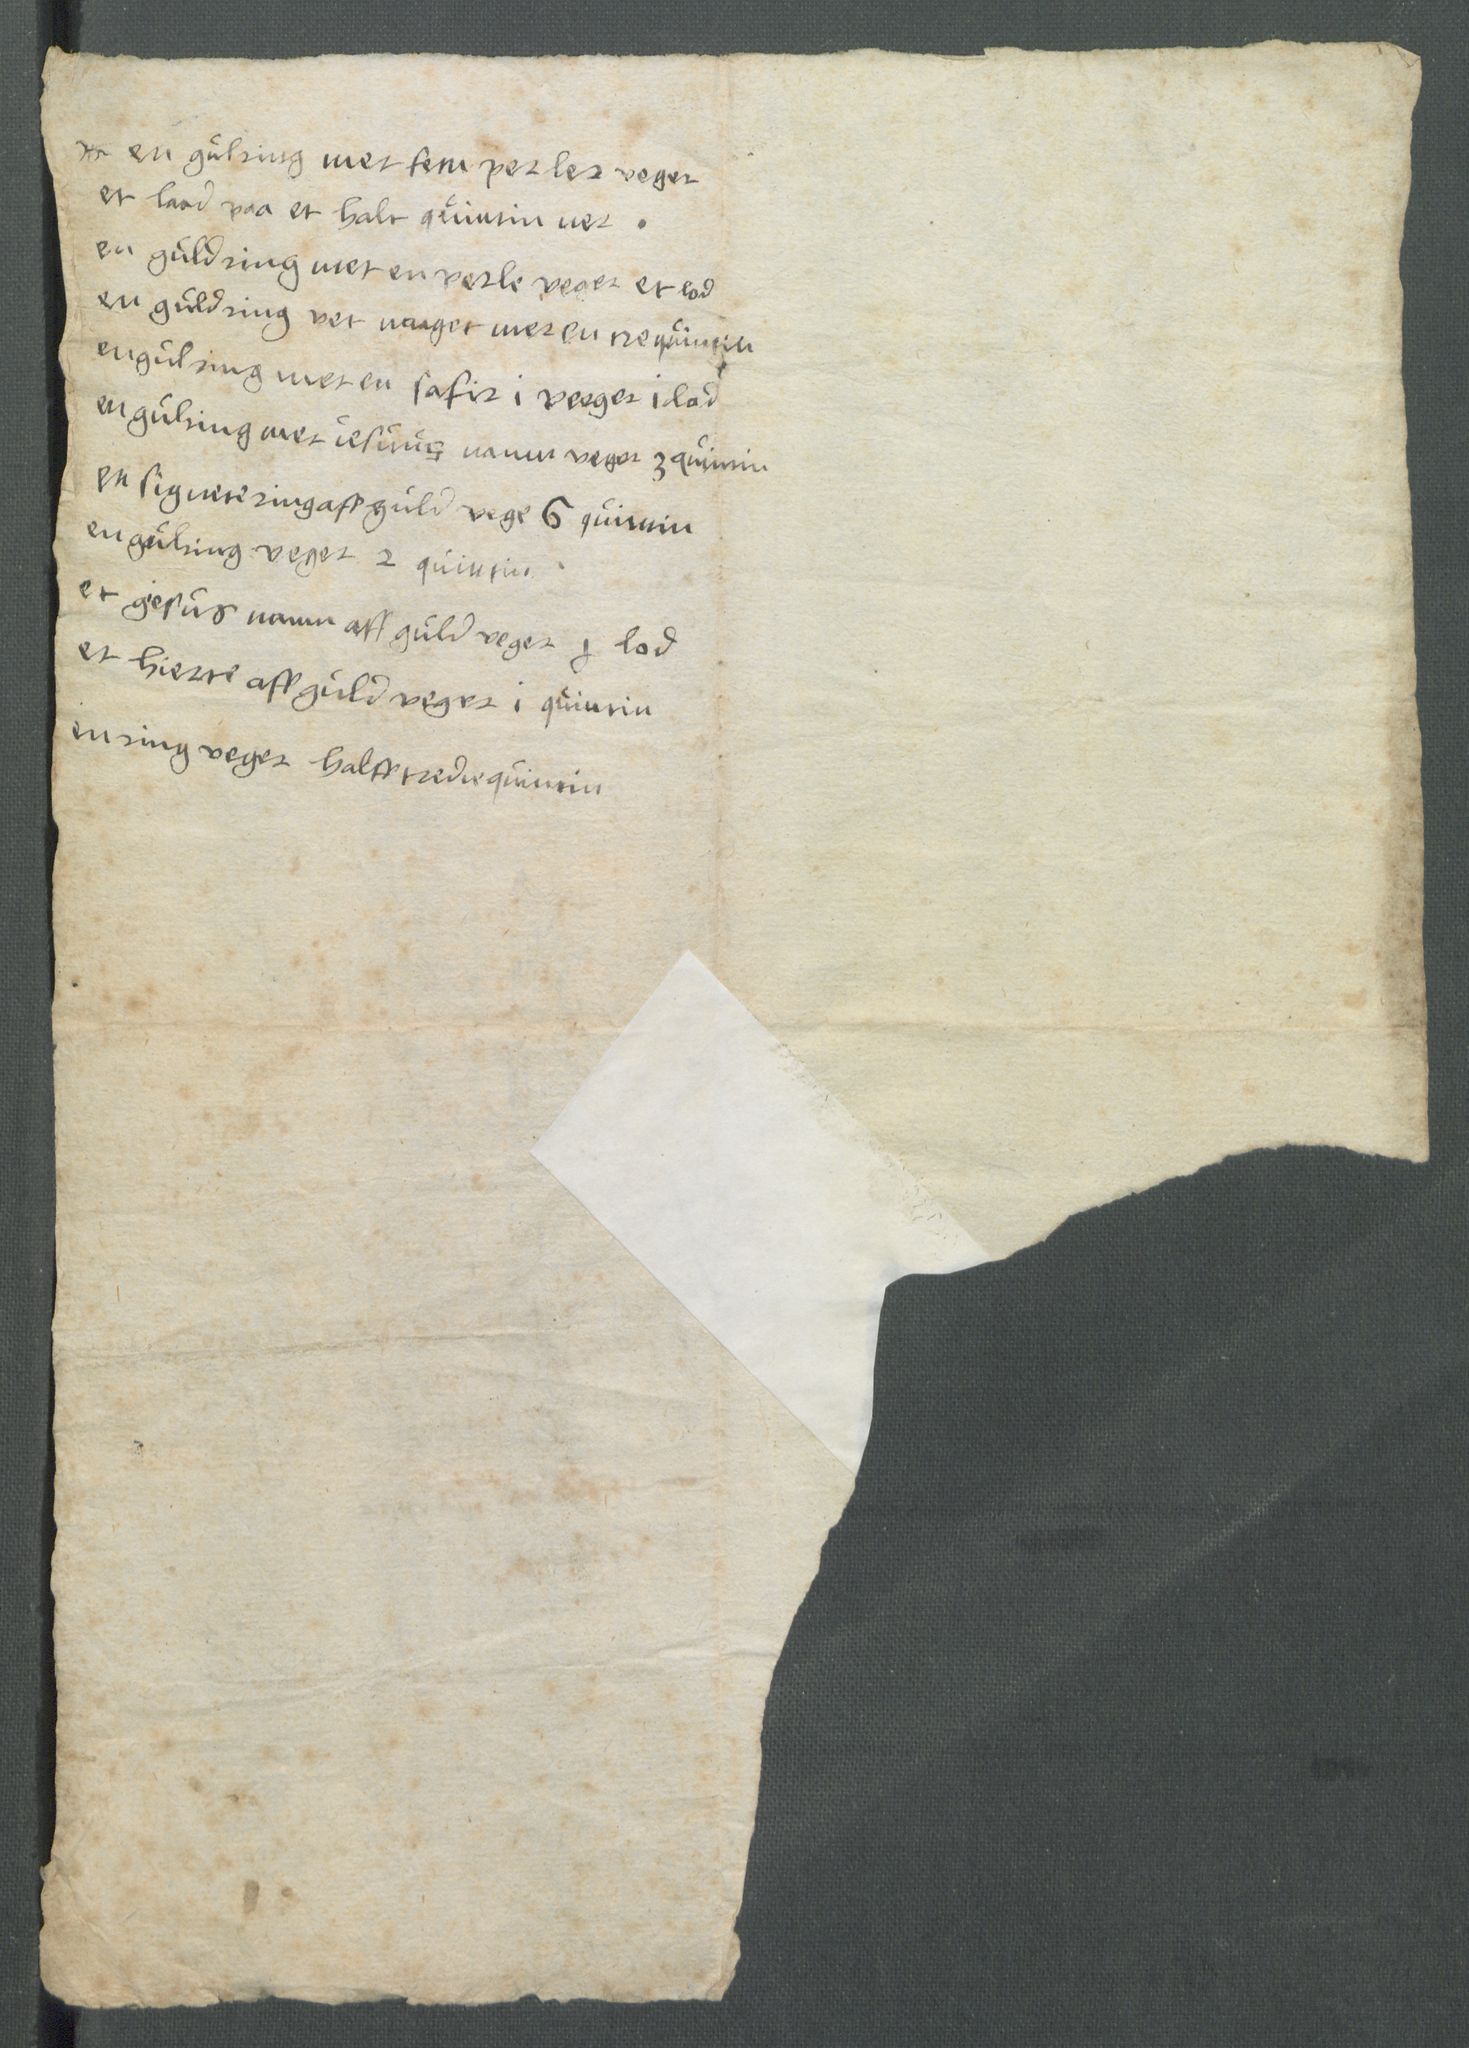 en gulring met fem perler veger
et laad paa et halt quintin ner .
en guldring met en perle veger et lod
en guldring vet naaget mer en tre quintin
en gulring met en safir i veeger i lod
en gulring met iesuus naun veger 3 quintin
en signetering aff guld vege 6 quintin
en gulring veger 2 quintin .
et giesus naun aff guld veger lod
et hierte aff guld veger i quintin
en ring veger halff tredie quintin